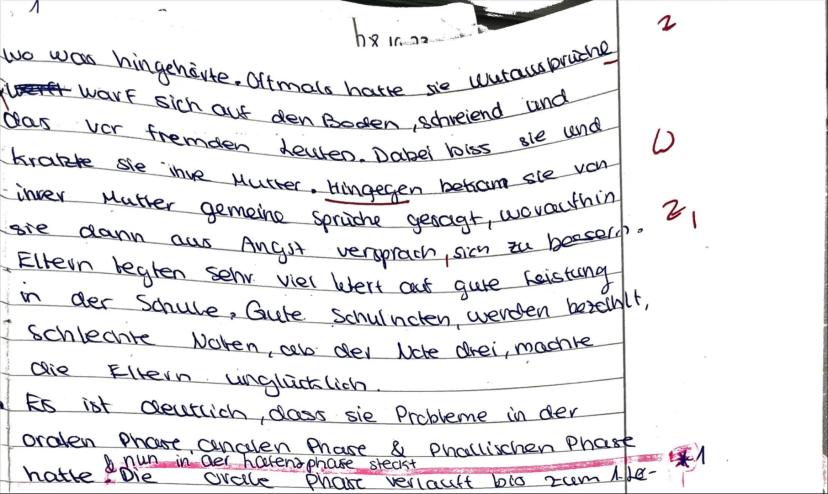 1
h8 10.23
2
wo was hingehörte. Oftmals hatte sie Wutausbrüche
warf sich auf den Boden, schreiend und
das vor fremden Leuten. Dabei biss sie und
W
kratzte sie ihre Mutter. Hingegen bekam sie von
ihrer Mutter gemeine Sprüche gesagt, woraufhin
Z,
sie dann aus Angst versprach, sich zu bessern.
Eltern legten sehr viel Wert auf gute Leistung
in der Schule. Gute Schulnoten, werden bezahlt,
schlechte Noten, ab der Note drei, machte
die Eltern unglücklich.
Es ist deutlich, dass sie Probleme in der
oralen Phase, analen Phase & Phallischen Phase
& nun in der steckt *1
hatte. Die orale Phase verläuft bis zum 1. Le-